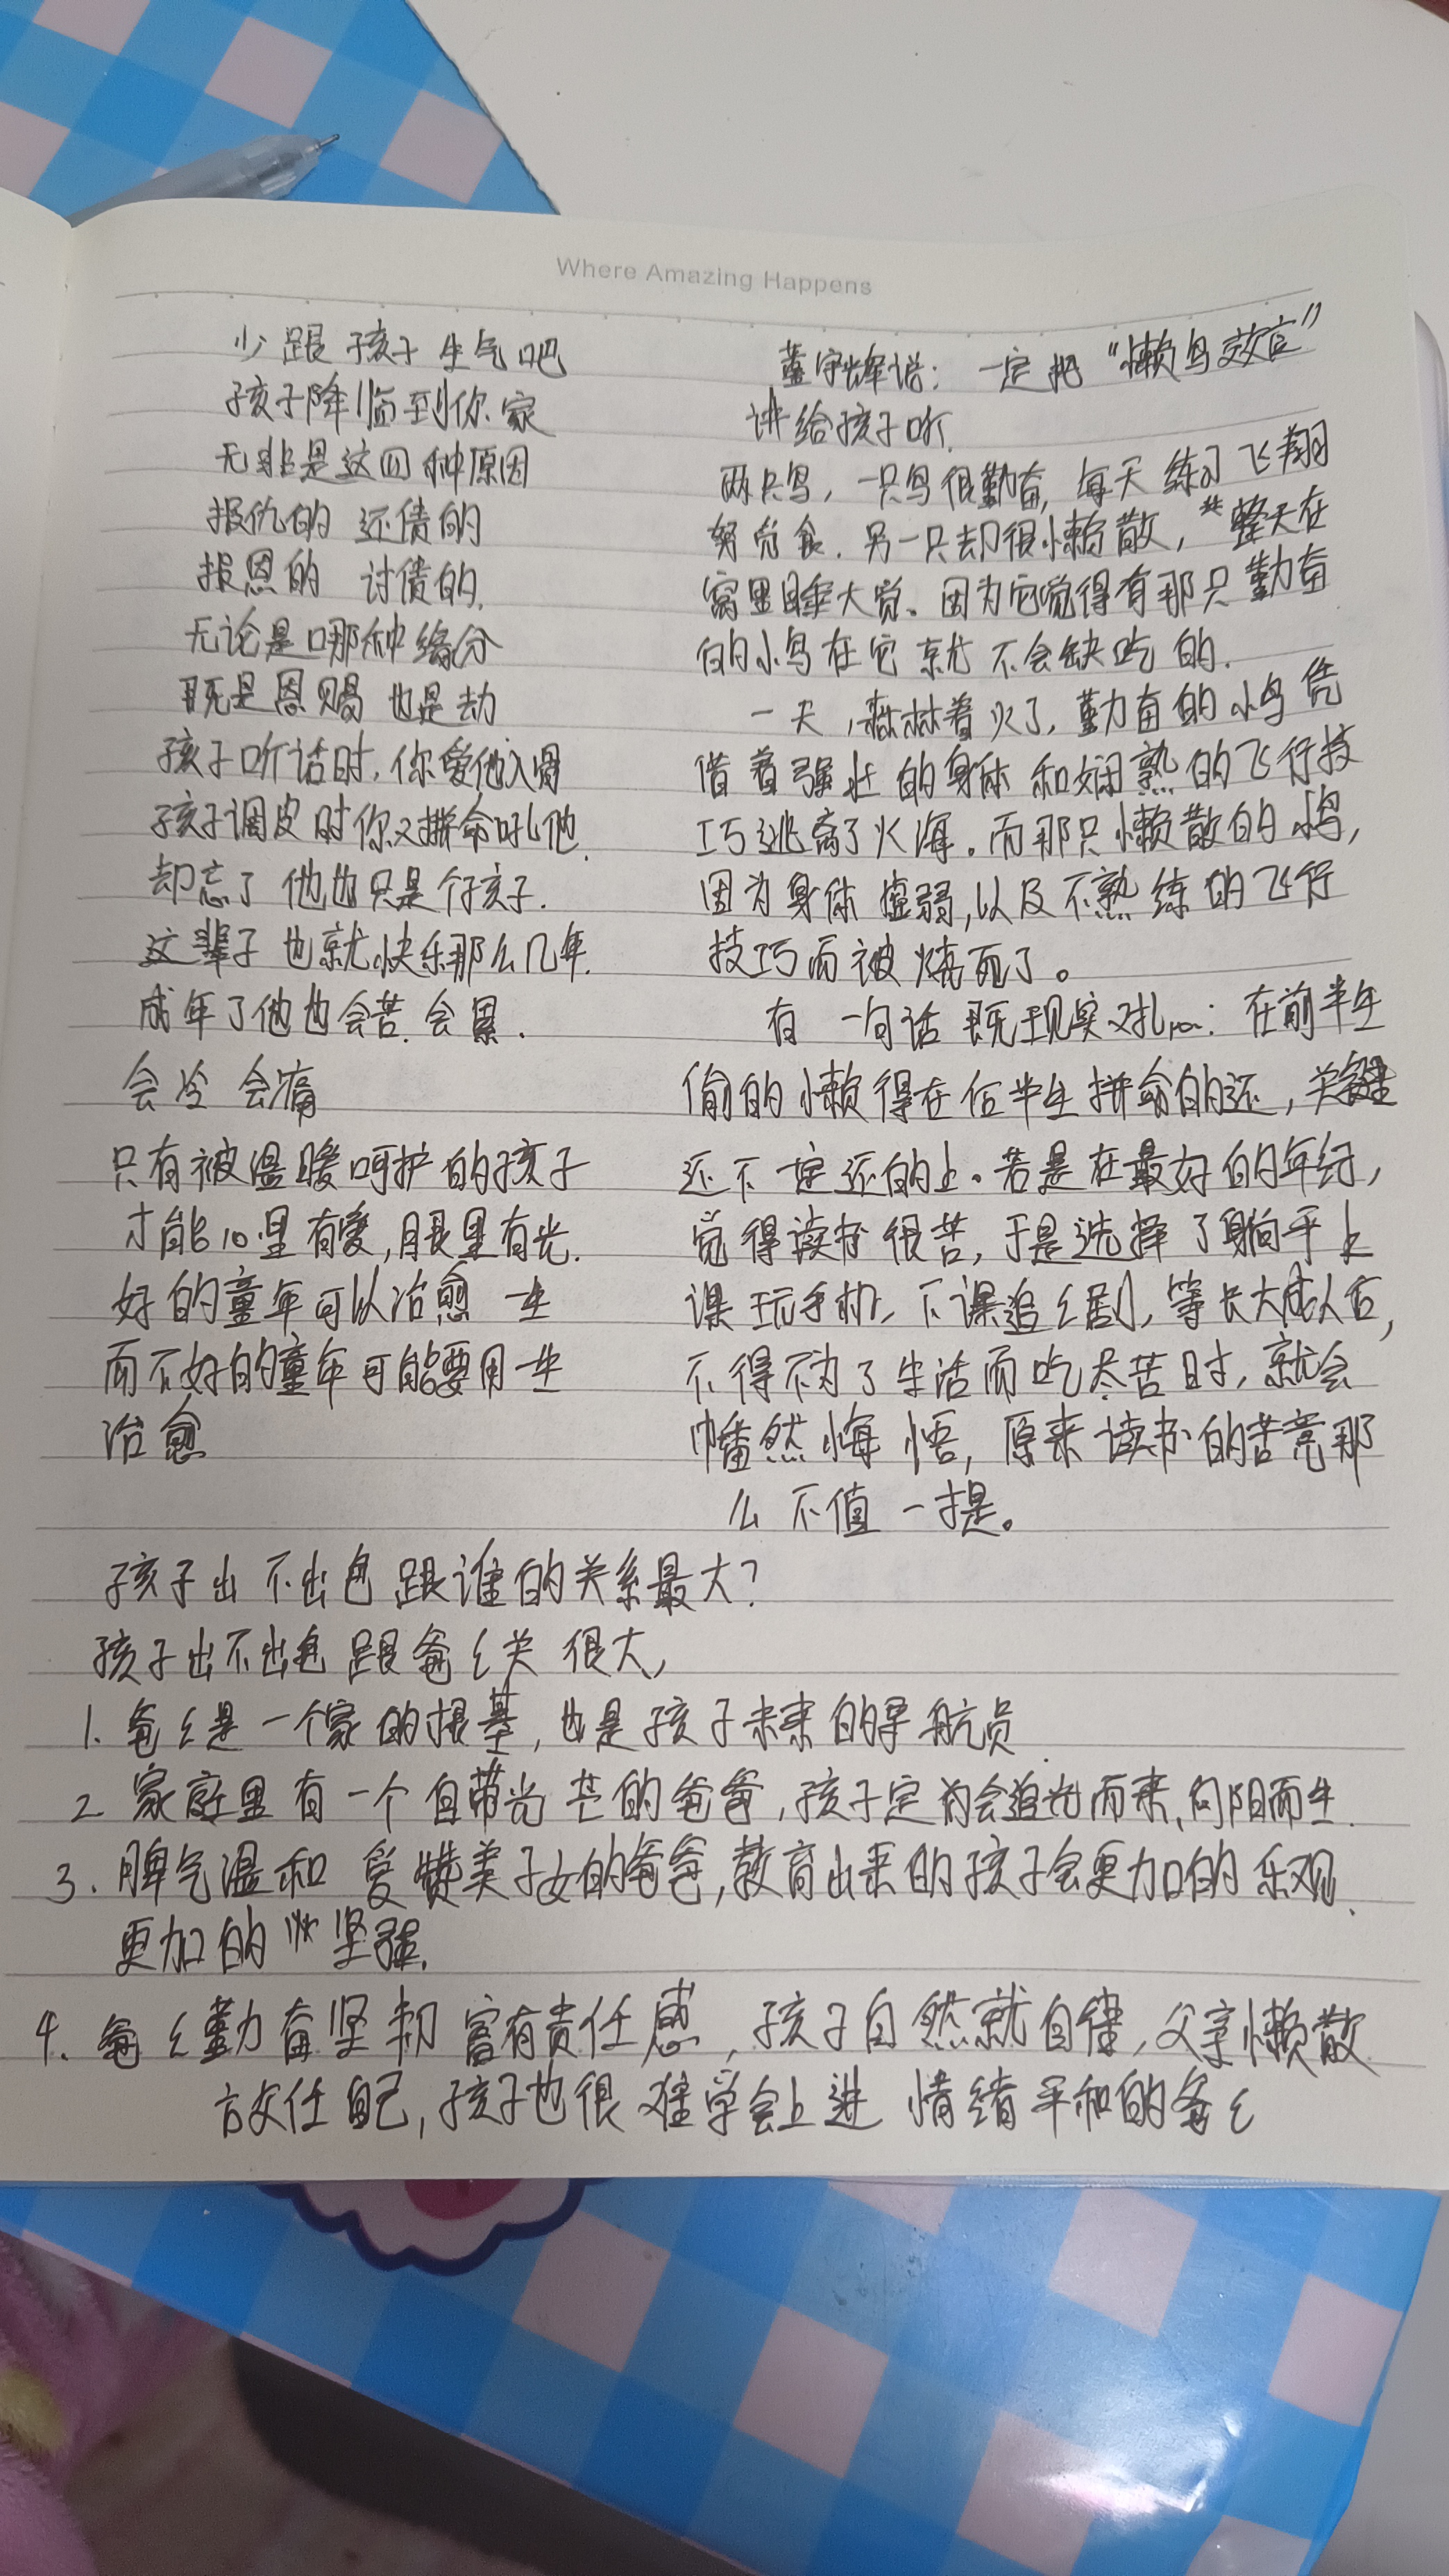 Where Amazing Happens
少跟孩子生气吧
孩子降临到你家
无非是这四种原因
报仇的 还债的
报恩的 讨债的.
无论是哪种缘分
既是恩赐 也是劫
孩子听话时,你爱他入骨
孩子调皮时你又拼命吼他.
却忘了他也只是个孩子.
这辈子也就快乐那么几年.
成年了他也会苦.会累.
会冷 会痛
只有被温暖呵护的孩子
才能心里有爱,眼里有光.
好的童年可以治愈一生
而不好的童年可能要用一生
治愈
董宇辉说: 一定把“懒鸟效应”
讲给孩子听.
两只鸟,一只鸟很勤奋,每天练习飞翔
努觅食.另一只却很懒散,整天在
窝里睡大觉。因为它觉得有那只勤奋
的小鸟在它就不会缺吃的.
一天,森林着火了,勤奋的小鸟凭
借着强壮的身体和娴熟的飞行技
巧逃离了火海。而那只懒散的小鸟,
因为身体虚弱,以及不熟练的飞行
技巧而被烧死了。
有一句话既现实又扎心: 在前半生
偷的懒得在后半生拼命的还,关键
还不一定还的上。若是在最好的年纪,
觉得读书很苦,于是选择了躺平上
课玩手机,下课追々剧,等长大成人后,
不得不为了生活而吃尽苦时,就会
幡然悔悟,原来读书的苦竟那
么不值一提。
孩子出不出色跟谁的关系最大?
孩子出不出色跟爸々关很大,
1. 爸々是一个家的根基,也是孩子未来的导航员.
2 家庭里有一个自带光芒的爸爸,孩子定会追光而来,向阳而生.
3. 脾气温和 爱赞美子女的爸爸,教育出来的孩子会更加的乐观.
更加的坚强.
4. 爸々勤奋坚韧富有责任感,孩子自然就自律,父亲懒散
放任自己,孩子也很难学会上进 情绪平和的爸々